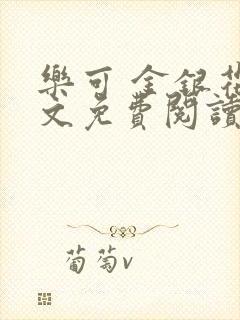 樂可 金銀花
文免費閱讀
葡萄v